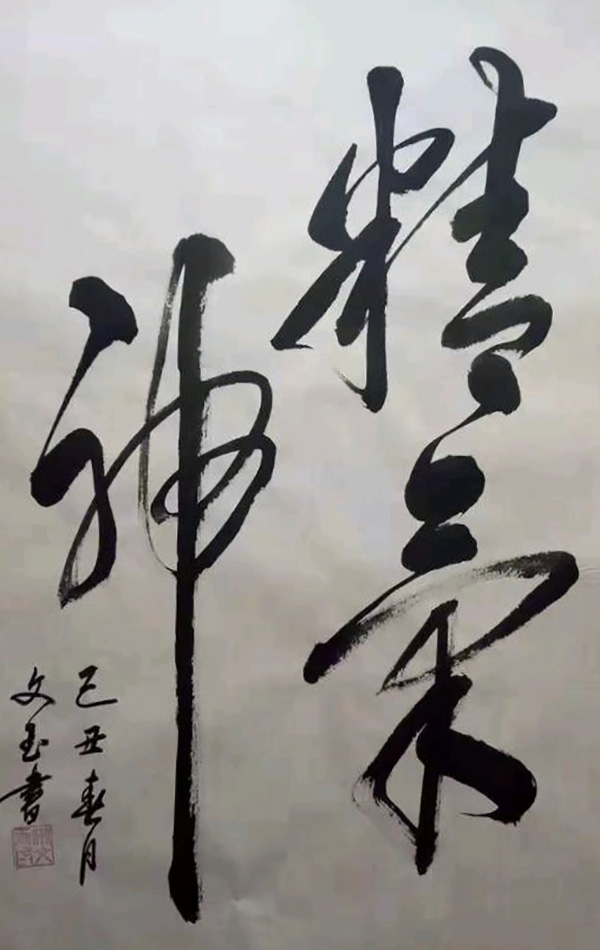 精氣
神
己丑春月
文玉書